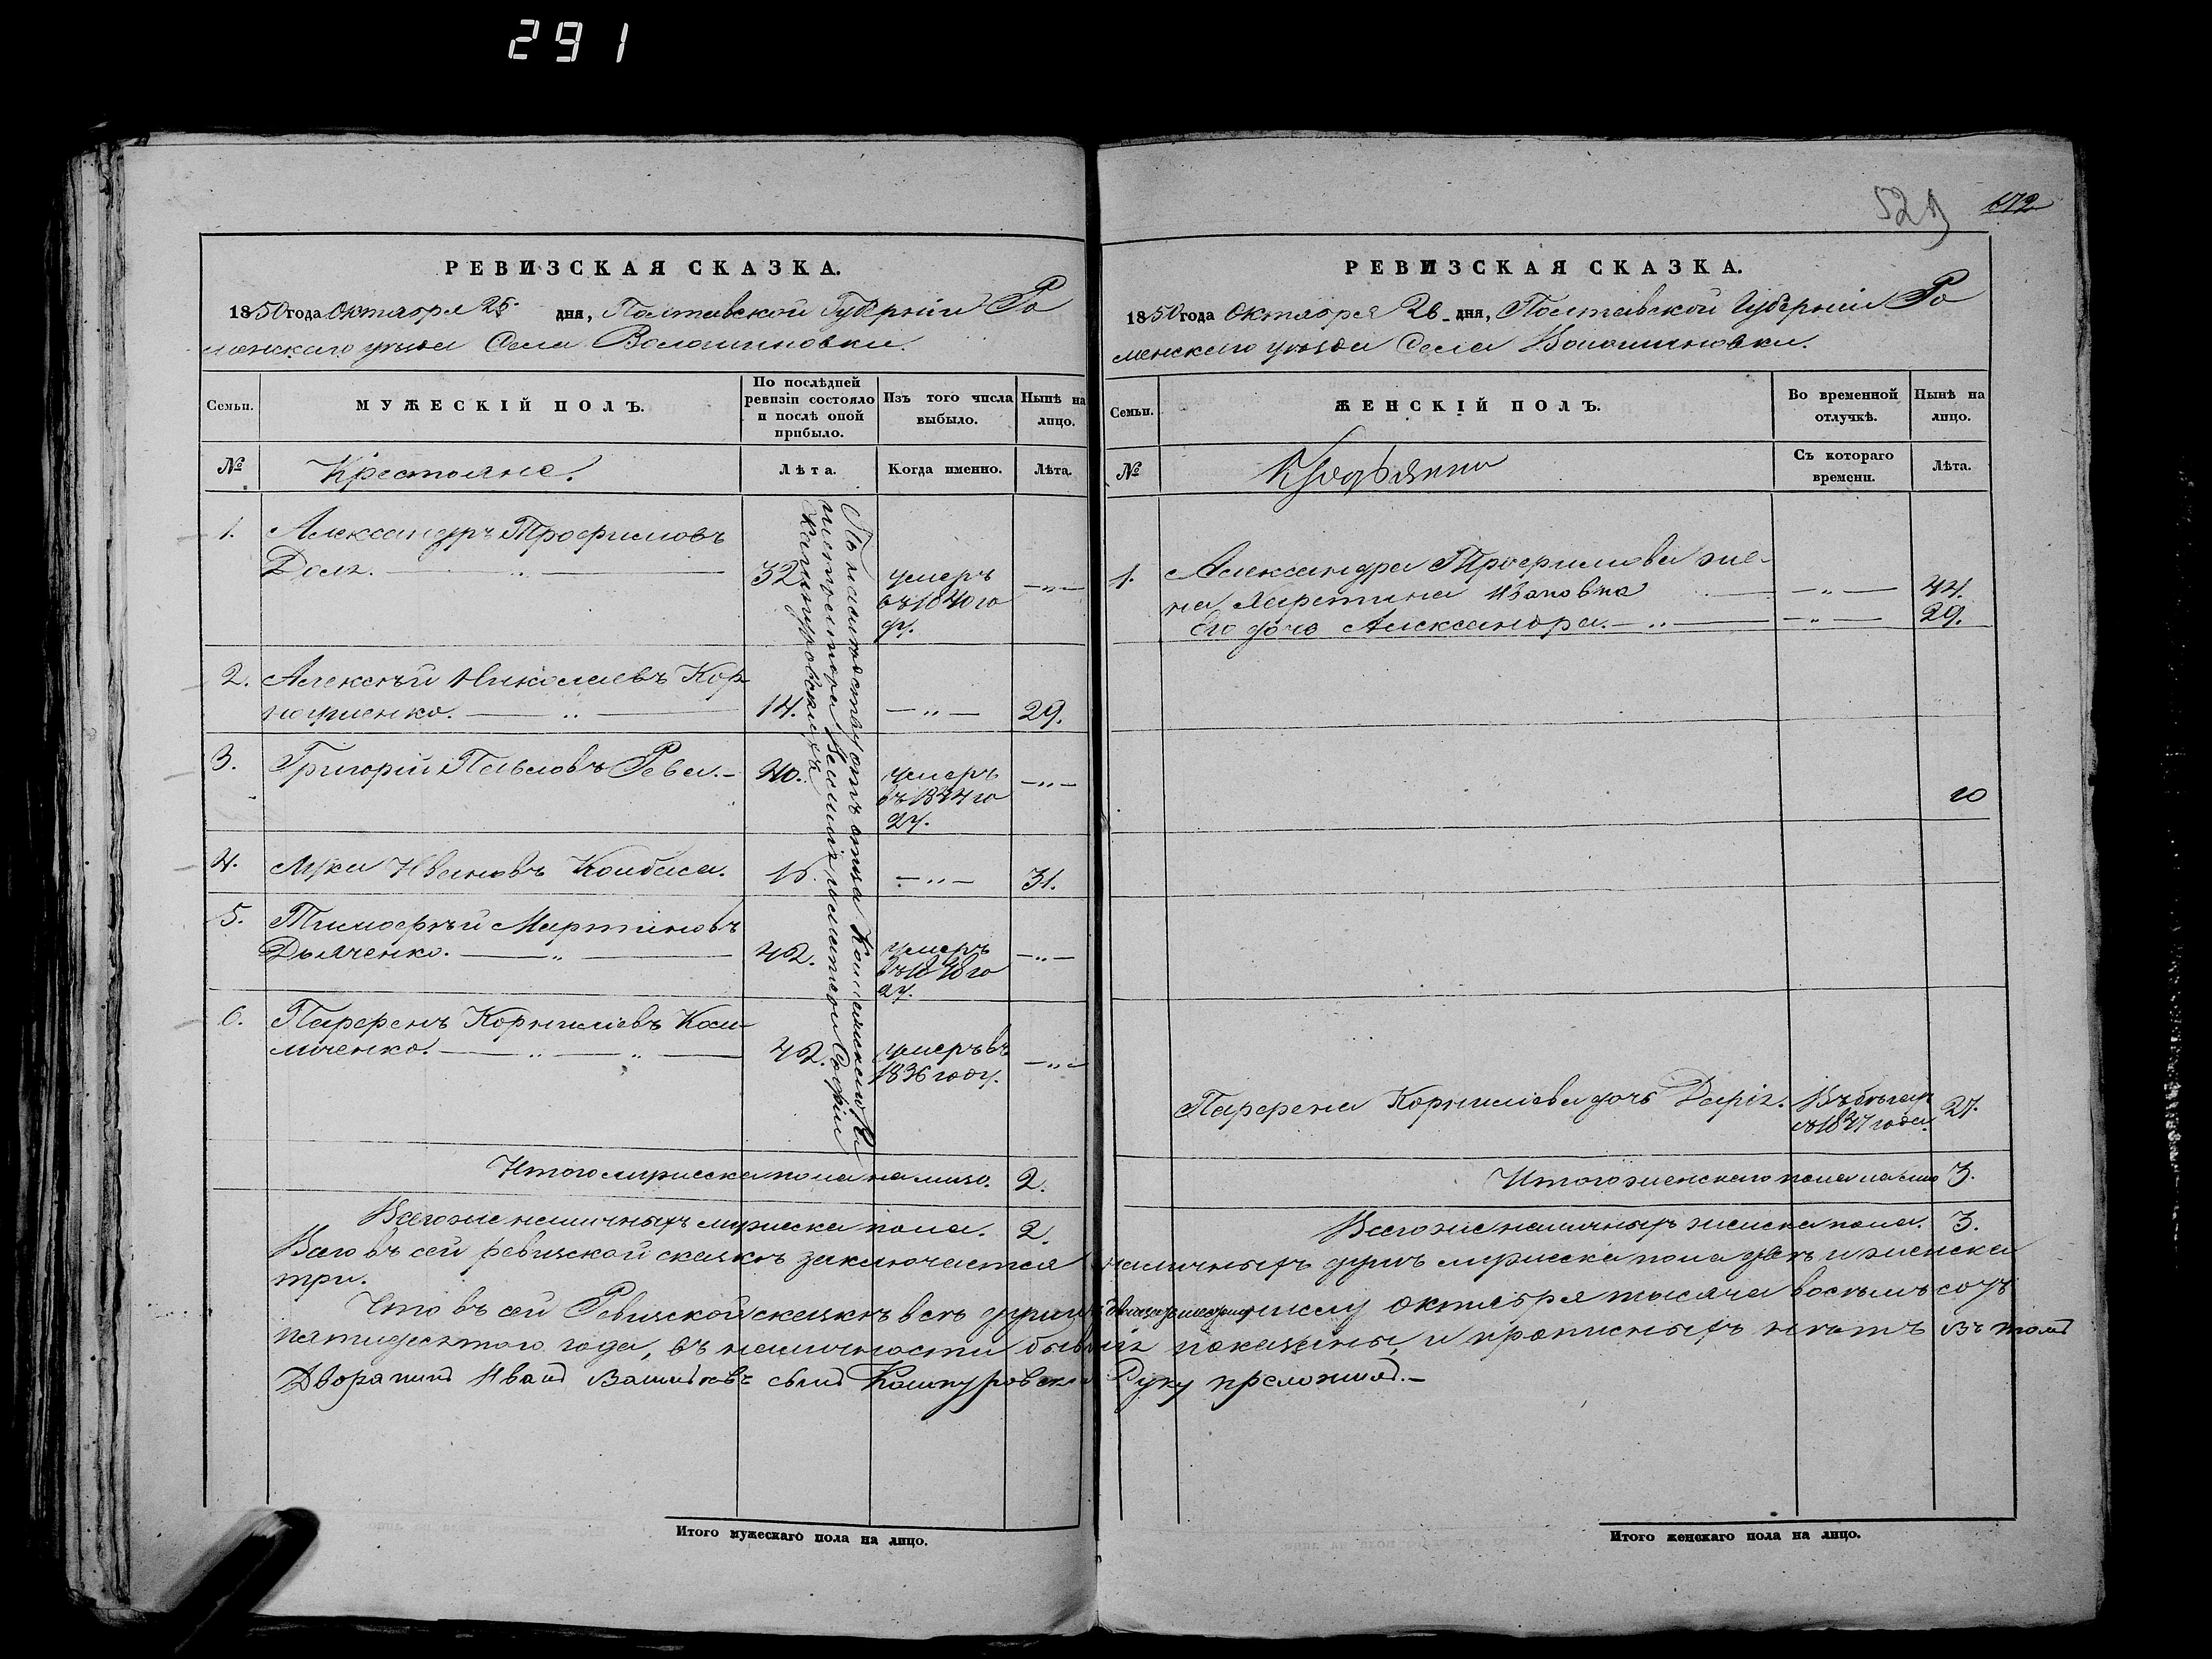 291
529 172
РЕВИЗСКАЯ СКАЗКА.
1850 года Октября 26 дня, Полтавской Губерніи Ро
менскаго уѣзда Села Волошиновки.
Семьи.
МУЖЕСКІЙ ПОЛЪ.
По послѣдней ревизіи состояло и послѣ оной прибыло.
Изъ того числа выбыло.
Нынѣ на лицо.
№
Крестьяне.
Лѣта.
Когда именно.
Лѣта.
По наслѣдству отъ отца
1. Александръ Трофимовъ
Доля. 32 умеръ
въ 1840 го
ду.
2. Алексѣй Николаевъ Кор
14. 29.
3. Григорій Павловъ Рева. 20. умеръ
въ 1844 го
ду.
4. Лука Ивановъ Ковбаса. 16. 31.
5. Тимофѣй Мартиновъ
Дьяченко. 42. умеръ
въ 1848 го
ду.
6. Парфенъ Корниліевъ
42. умеръ въ
1836 году.
Итого мужеска пола на лицо. 2.
Всего же наличныхъ мужеска пола. 2.
РЕВИЗСКАЯ СКАЗКА.
1850 года Октября 26 дня, Полтавской Губерніи Ро
менскаго уѣзда Села Волошиновки.
Семьи.
ЖЕНСКІЙ ПОЛЪ.
Во временной отлучкѣ.
Нынѣ на лицо.
№
Съ котораго времени.
Лѣта.
1. Александра Трофимова же-
на Харитина Ивановна 44.
Его дочь Александра. 29.
Парфена Корниліева дочь Дарія. Въ бѣгах
съ 1847 года. 27.
Итого женскаго пола на лицо 3.
Всего же наличныхъ женска пола. 3.
Всего въ сей ревизской сказкѣ заключается наличныхъ душъ мужеска пола двѣ и женска
три.
Что въ сей Ревизской сказкѣ всѣ души числу Октября тысяча восемъ сотъ
пятидесятого года, въ наличности бывшія показаны, и прописныхъ нѣтъ въ томъ
Дворанинъ Иванъ сынъ Руку преложилъ.
Итого мужескаго пола на лицо.
Итого женскаго пола на лицо.